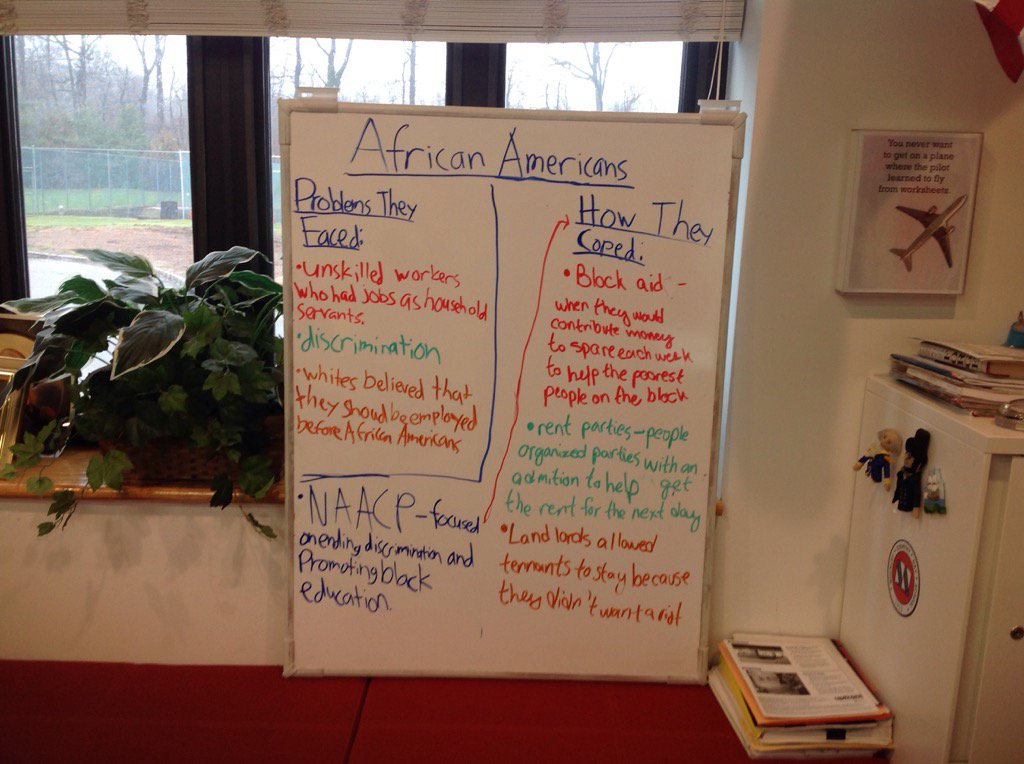 African Americans
Problems They
Faced:
•unskilled workers
who had jobs as household
servants.
•discrimination
•whites believed that
they shoud be employed
before African Americans
•NAACP-focused
on ending discrimination and
Promoting black
education.
How They
Coped:
•Block aid -
when they would
contribute money
to spare each week
to help the poorest
people on the block
•rent parties-people
organized parties with an
admition to help get
the rent for the next day
•Landlords allowed
tennants to stay because
they didn't want a riot
You never want
to get on a plane
where the pilot
learned to fly
from worksheets.